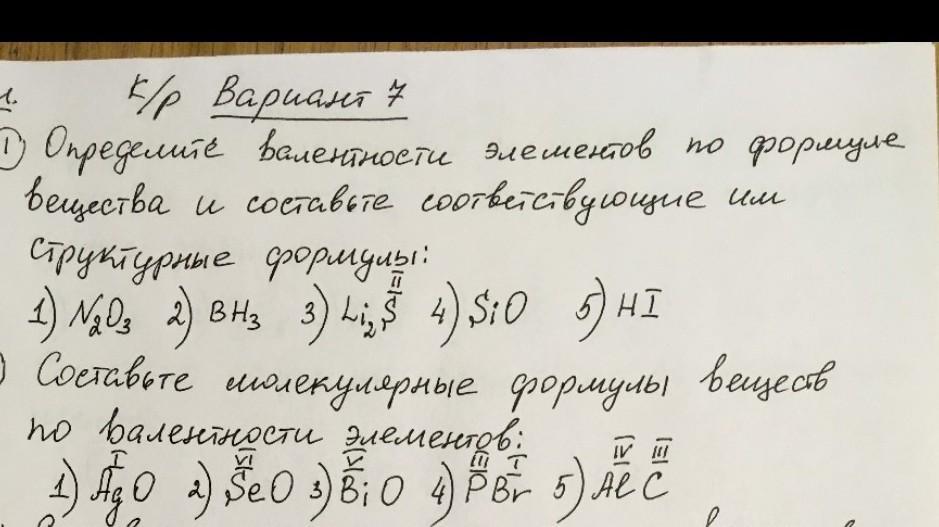 К/р Вариант 7
① Определите валентности элементов по формуле
вещества и составьте соответствующие им
структурные формулы:
II
1) N₂O₃ 2) BH₃ 3) Li₂S 4) SiO 5) HI
Составьте молекулярные формулы веществ
по валентности элементов:
I VI V III I IV III
1) AgO 2) SeO 3) BiO 4) PBr 5) AlC